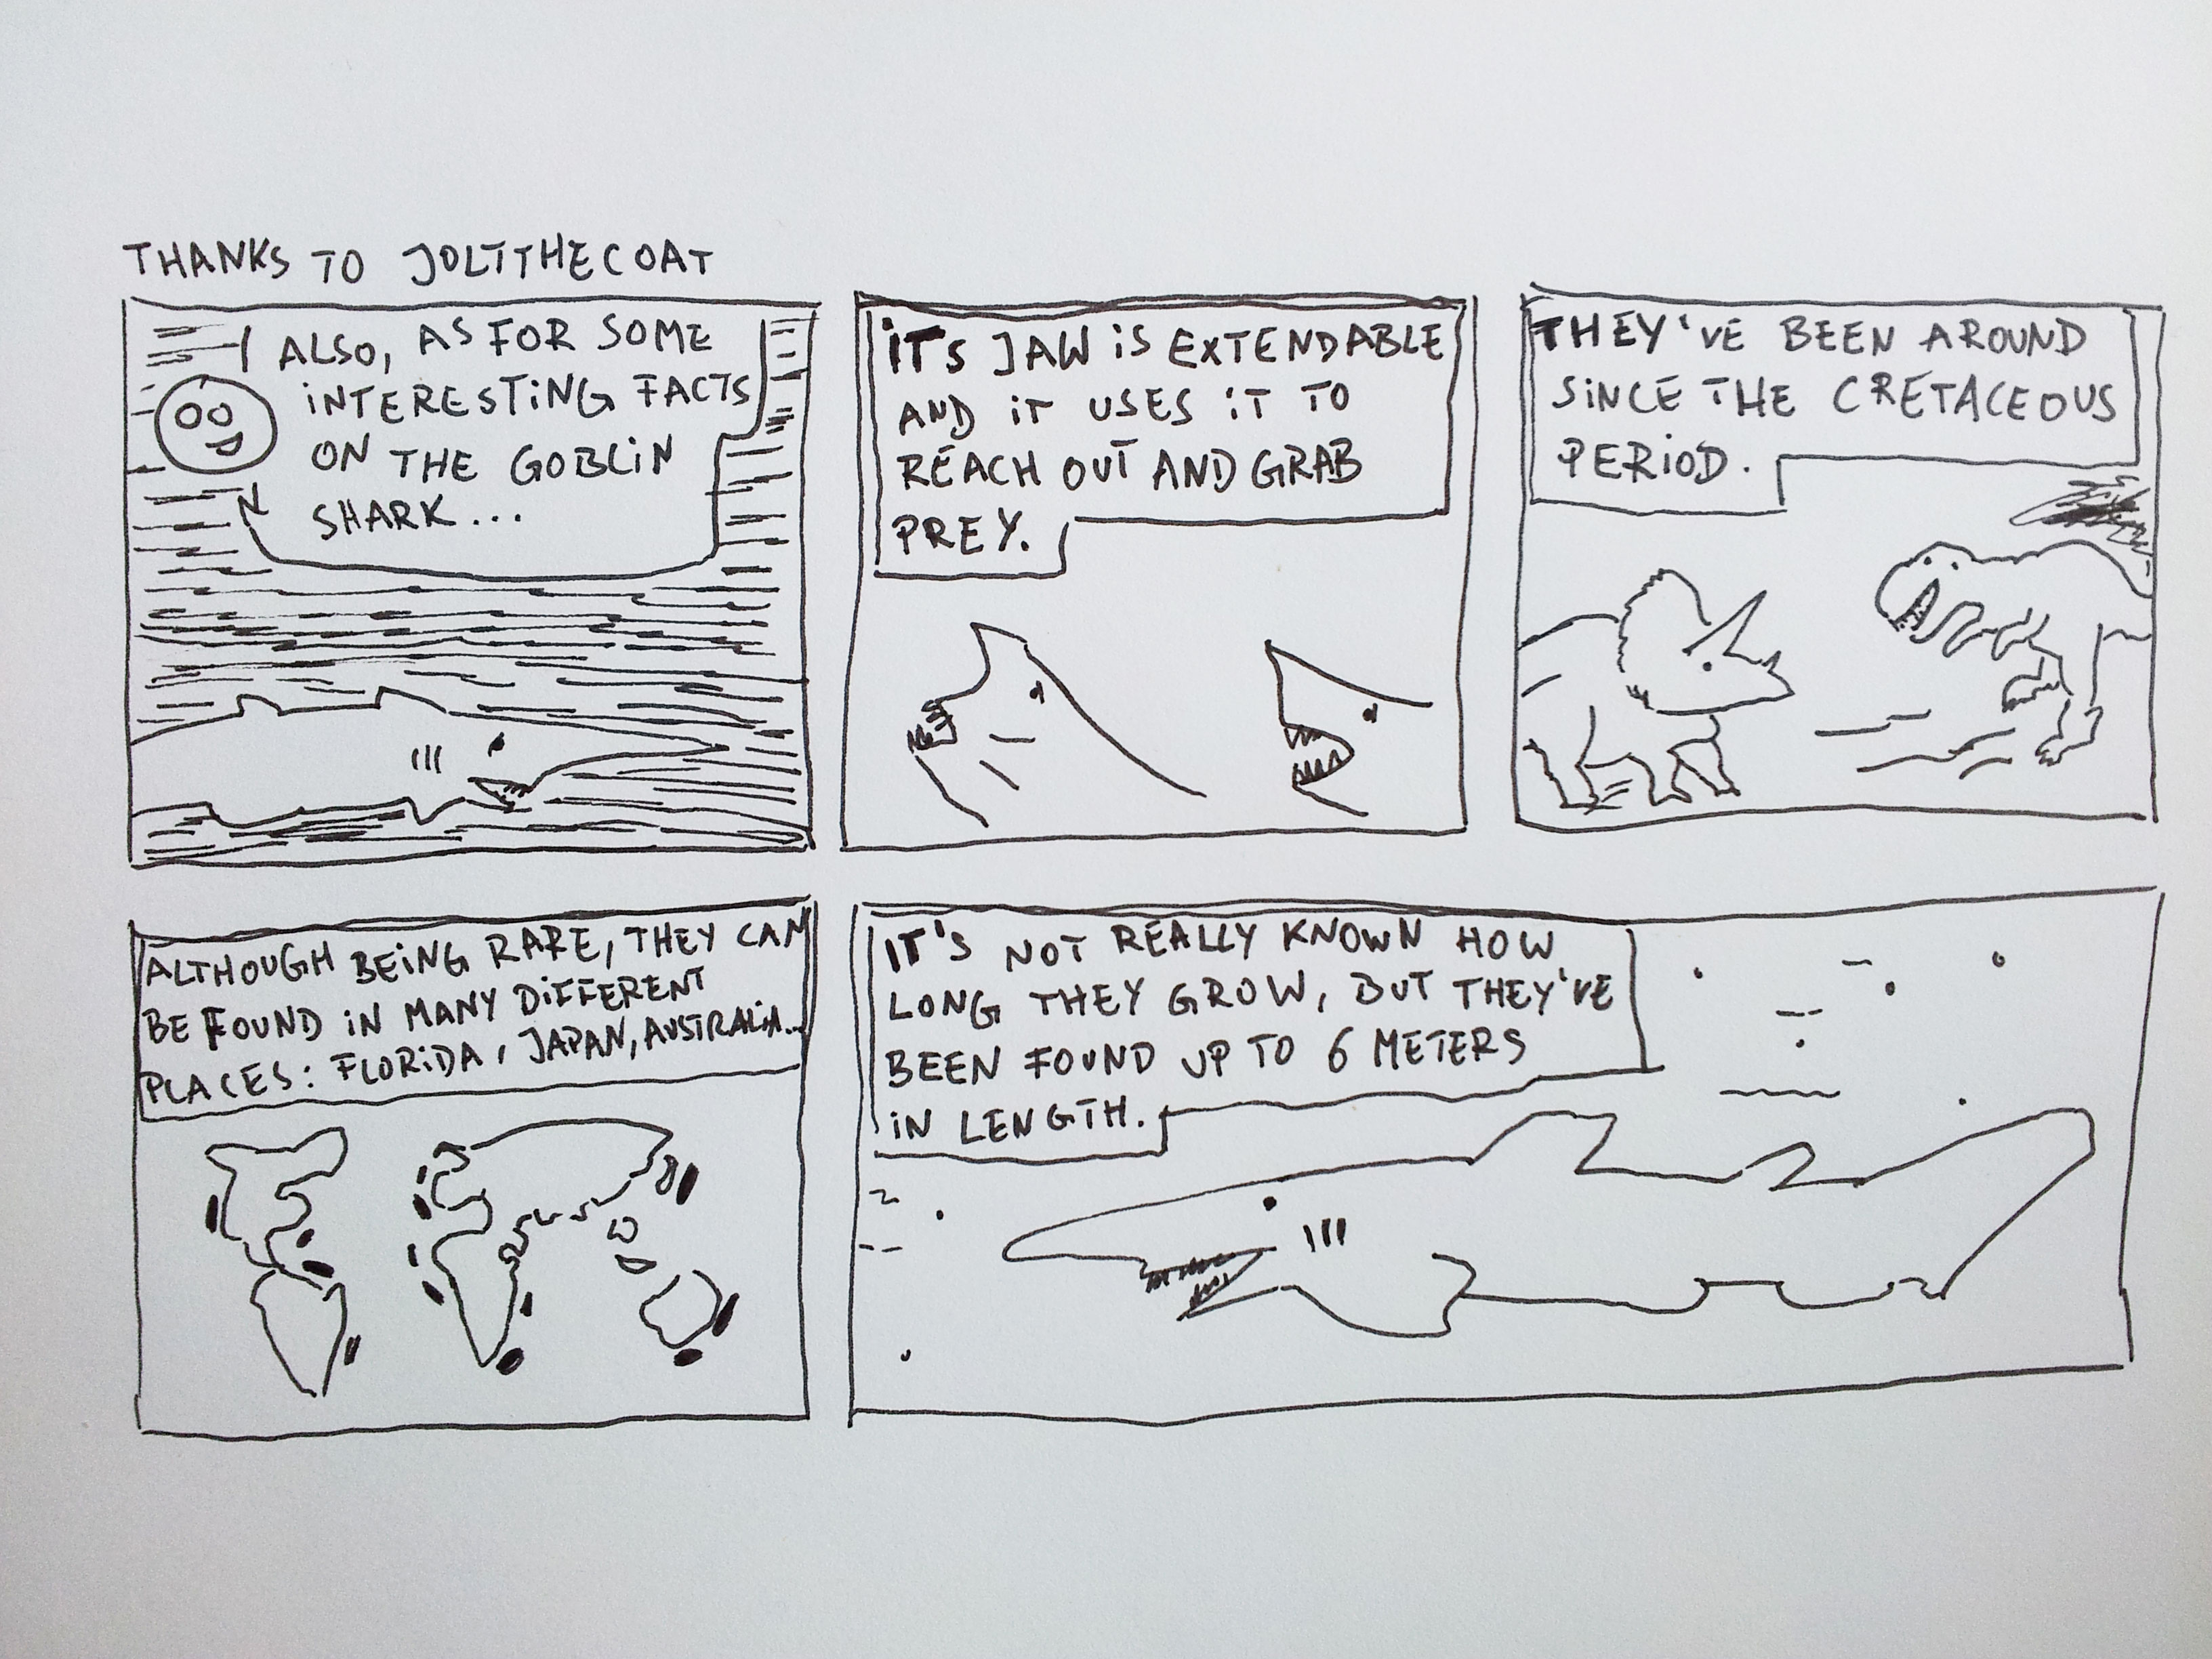 THANKS TO JOLTTHECOAT
ALSO, AS FOR SOME
INTERESTING FACTS
ON THE GOBLIN
SHARK...
ITS JAW IS EXTENDABLE
AND IT USES IT TO
REACH OUT AND GRAB
PREY.
THEY'VE BEEN AROUND
SINCE THE CRETACEOUS
PERIOD.
ALTHOUGH BEING RARE, THEY CAN
BE FOUND IN MANY DIFFERENT
PLACES: FLORIDA, JAPAN, AUSTRALIA...
IT'S NOT REALLY KNOWN HOW
LONG THEY GROW, BUT THEY'VE
BEEN FOUND UP TO 6 METERS
IN LENGTH.